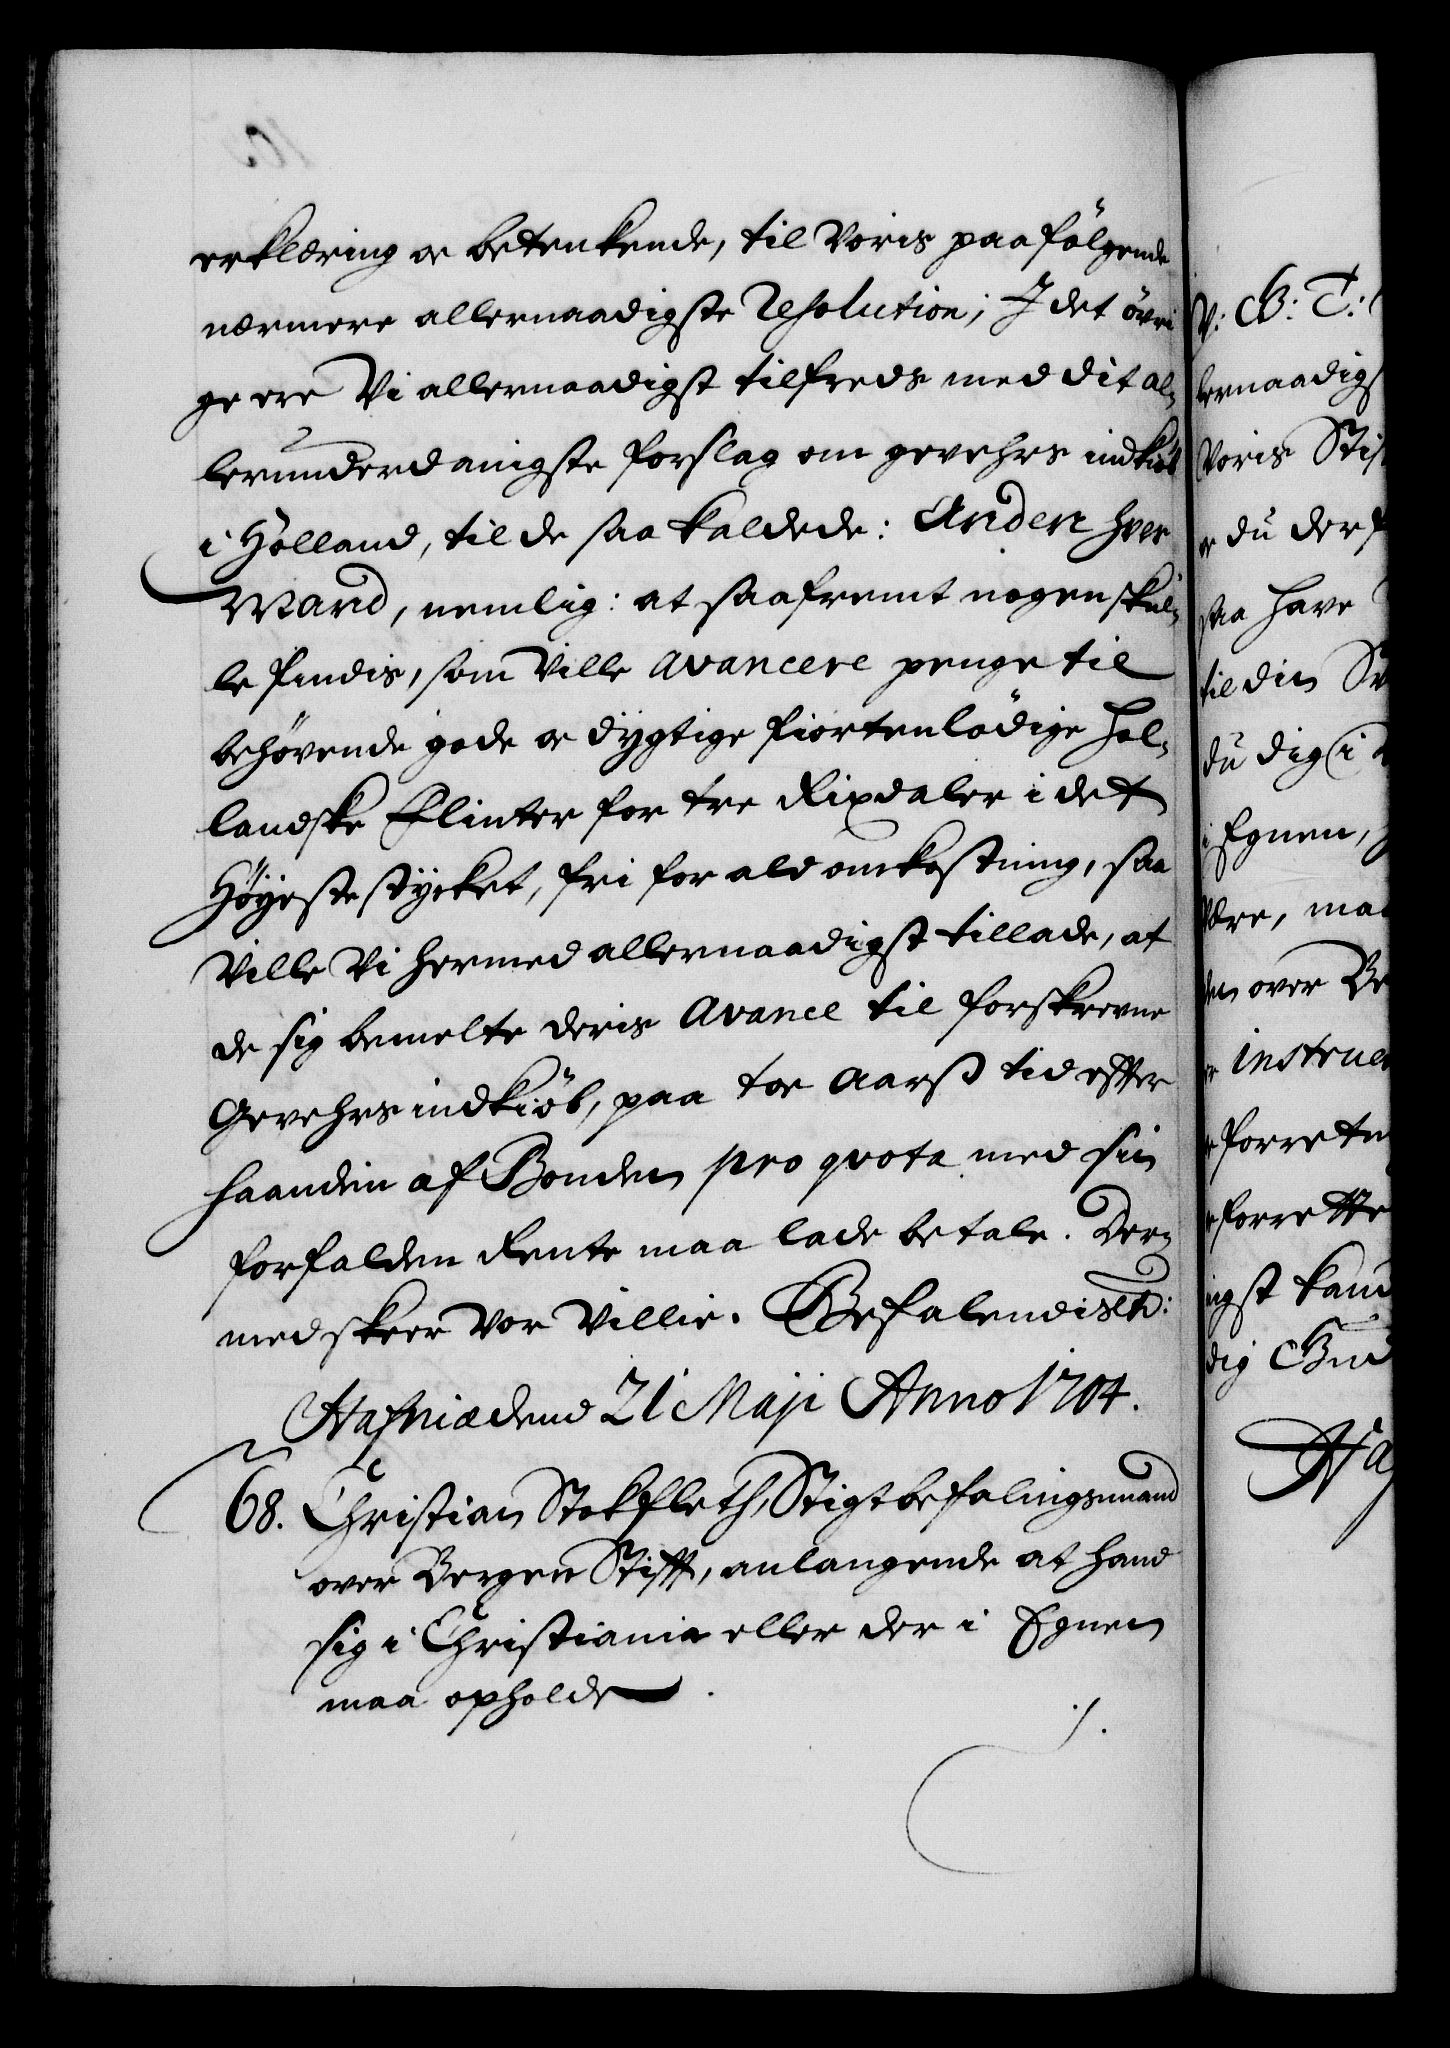 erklæring oc betenkende, til Voris paafölgende
nærmere allernaadigste Resolution; I det övri
ge ere Vi allernaadigst tilfreds med dit al¬
lerunderdanigste forslag om gevehrs indkiöb
i Holland, til de saa kaldede: Anden hver
Mand, nemlig: at saafremt nogen skul¬
le findis, som Ville avancere penge til
behøvende gode oc dygtige fiortenlödige hol¬
landske Flinter for tre Rixdaler i det
Höyeste stycket, fri for ald omkostning, saa
Ville Vi hermed allernaadigst tillade, at
de sig bemelte deris Avance til forskrevne
Gevehrs indkiöb, paa toe Aarß tid efter
haanden af Bonden pro qvota med sin
forfalden Rente maa lade betale. Der¬
med skeer Vor Villie. Befalendis etc:
Hafniæ dend 21 Maji Anno 1704.
68. Christian Stokfleth, Stigtbefalingsmand
over Bergen Stifft, anlangende at hand
sig i Christiania eller der i Egnen
maa opholde.
V: G: T:
lernaadigs
Voris Stif
oc du der f
saa have
til din
du dig i
i Egnen,
være, maa
den over Be
instruc
forrette
forrette
igst kand
dig Gud
Haf